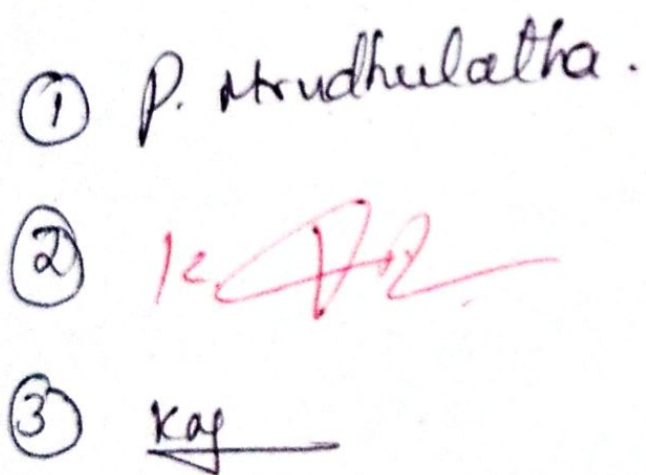 ① P. Mrudhulatha.
② K.
③ Kaj